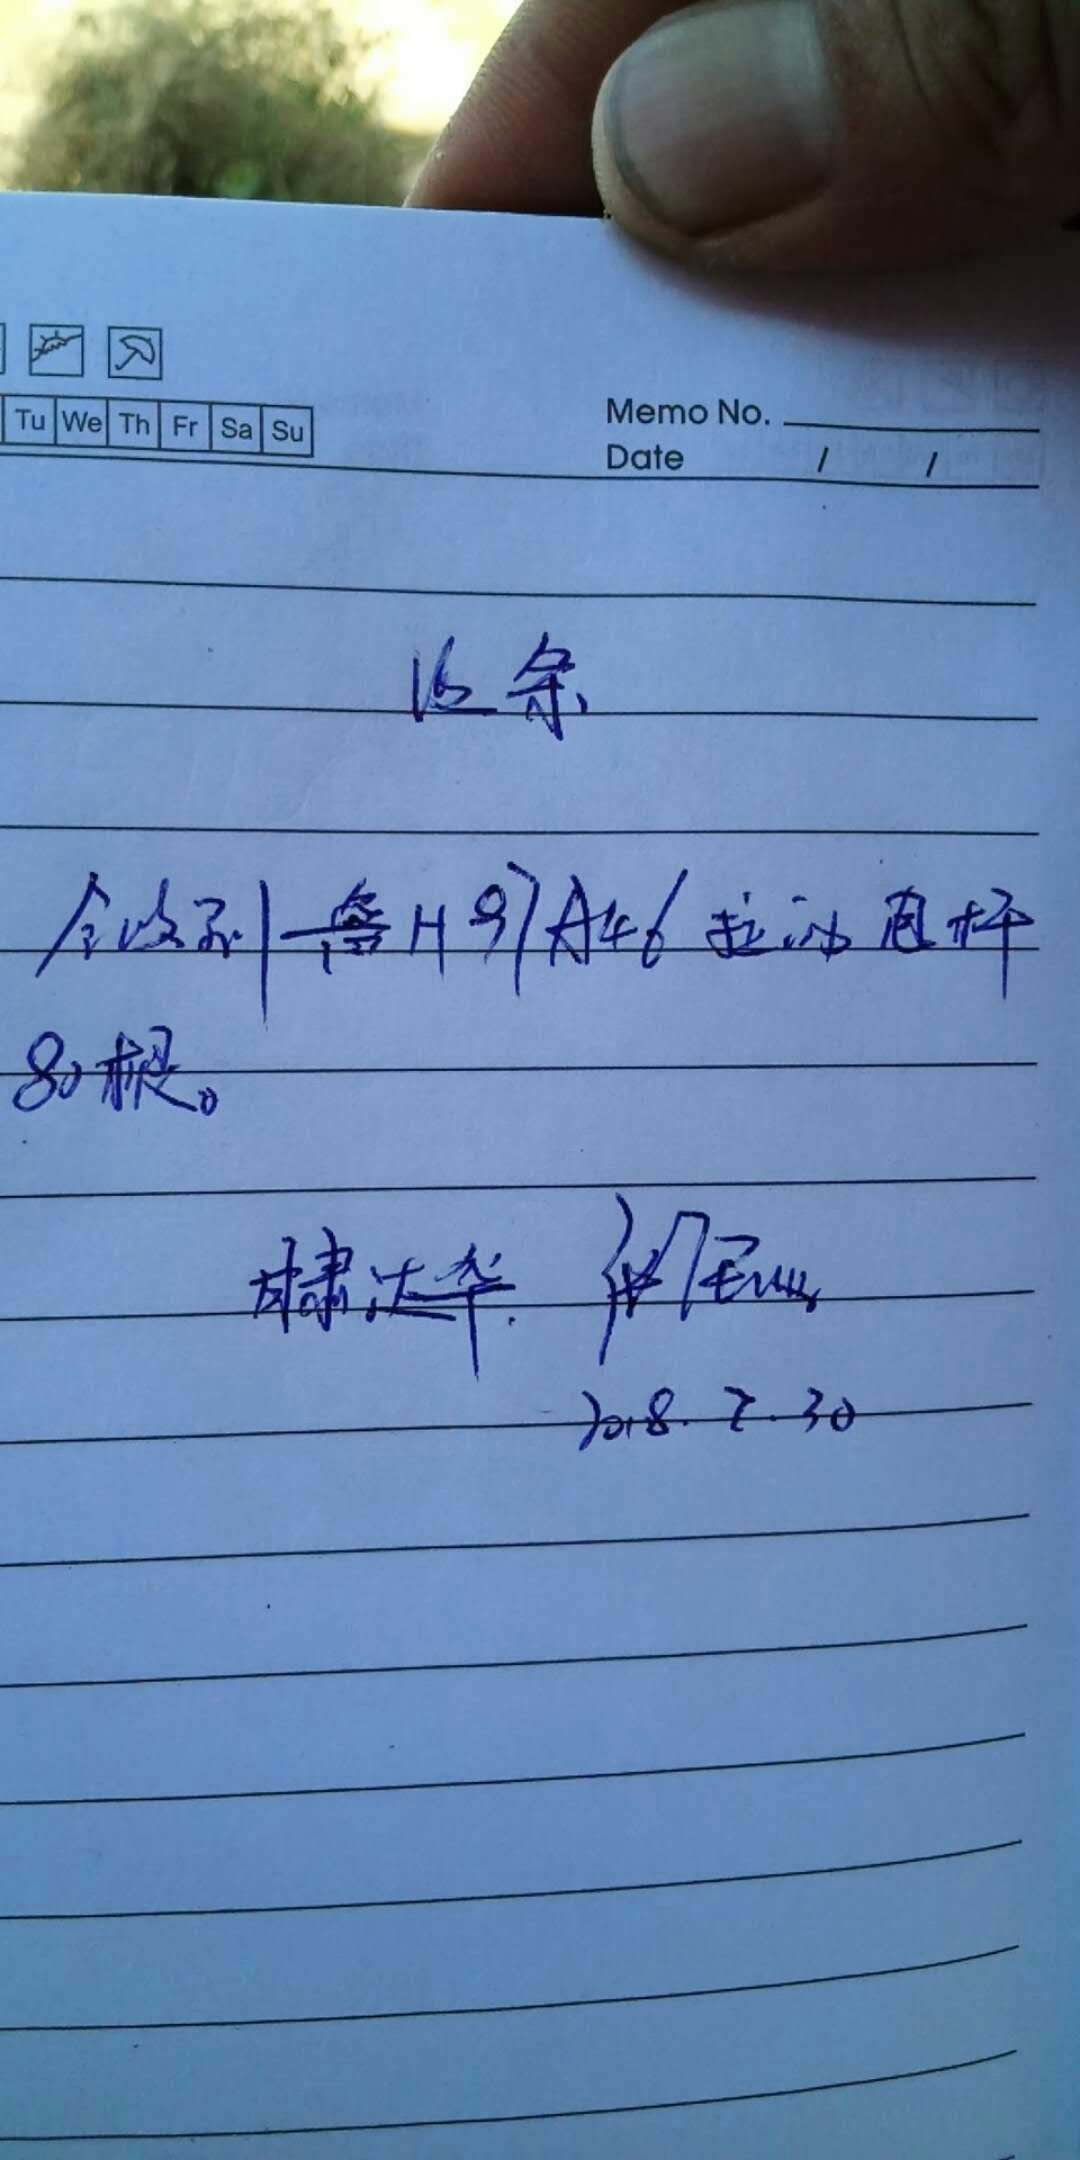 Tu We Th Fr Sa Su
Memo No.
Date / /
收条
今收到鲁H97A46拉 电杆
80根。
甘肃达华
2018.7.30